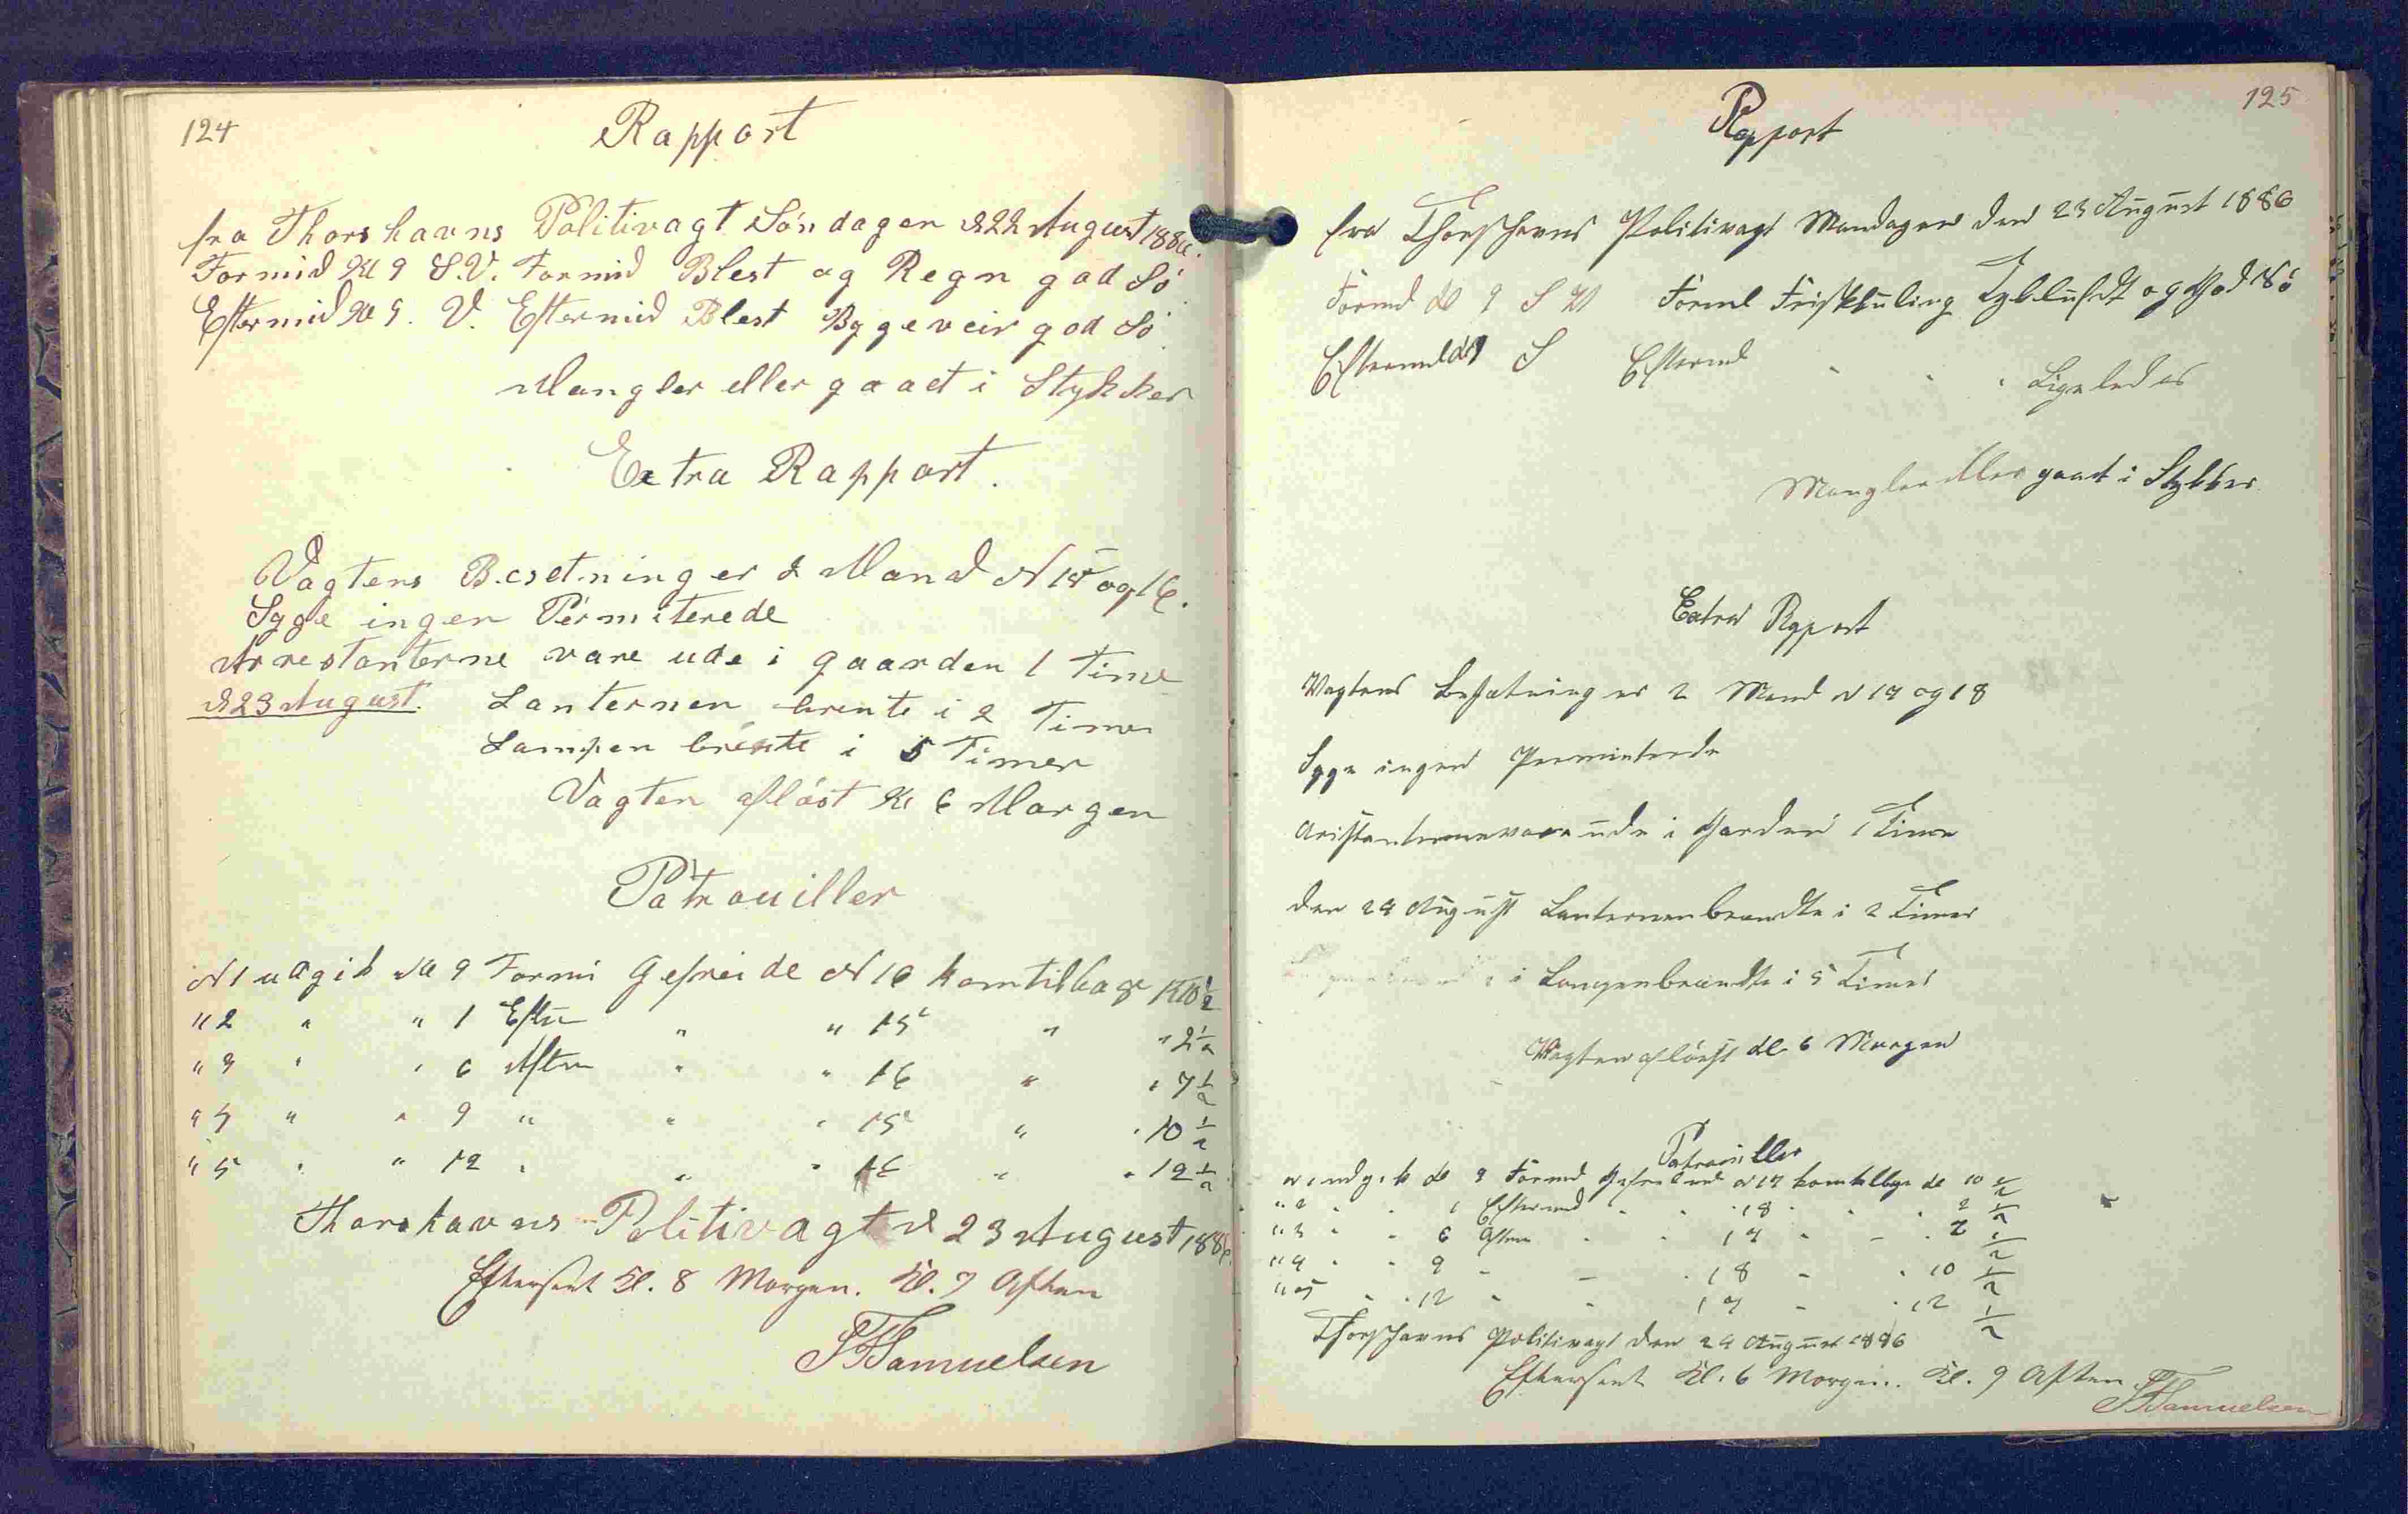 124
Rapport
fra Thorshavns Politivagt Söndagen d 22 August 1886.
Formid Kl 9 S.V. Formid Blest og Regn god Sö
Eftermid Kl 4. V. Eftermid Blest Byggeveir god Sö
Mangler eller gaaet i Stykker
Extra Rapport.
Vagtens Besetning er 2 Mand N 15 og 16.
Syge ingen Permiterede
Arrestanterne vare ude i gaarden 1 Time
d 23 August. Lanternen brente i 2 Timer
Lampen brente i 5 Timer
Vagten aflöst Kl 6 Morgen
Patrouiller
N 1 udgik Kl 9 Formi Gefreide N 16 komtilbage Kl 10 1/2
" 2 " " 1 Efter " " 15 " " 2 1/2
" 3 " " 6 Aften " " 16 " " 7 1/2
" 4 " " 9 " " " 15 " " 10 1/2
" 5 " " 12 " " " 16 " " 12 1/2
Thorshavns Politivagt d 23 August 1886.
Efterseet Kl. 8 Morgen. Kl. 7 Aften
Samuelsen
125
Rapport
fra Thorshavns Politivagt Mandagen den 23 August 1886
Formd Kl 9 S V Formd Friskkuling Tykluft og God Sö
Eftermd Kl 4 S Eftermd " " " Ligeledes
Mangler eller gaaet i Stykker
Extra Rapport
Vagtens Besætning er 2 Mand N 17 og 18
Syge ingen Permiterede
Aristanterne vare ude i Gaarden 1 Time
den 24 August Lanternen brændte i 2 Timer
i Lampen brændte i 5 Timer
Vagten aflöst Kl 6 Morgen
Patrouiller
N 1 udgik Kl 9 Formd Gefreided N 17 kom tilbage Kl 10 1/2
" 2 " " 1 Eftermd " " 18 " " 2 1/2
" 3 " " 6 Aften " " 17 " " 7 1/2
" 4 " " 9 " " 18 " " 10 1/2
" 5 " " 12 " " 17 " " 12 1/2
Thorshavns Politivagt den 24 August 1886
Efterseet Kl. 6 Morgen. Kl. 9 Aften
Samuelsen